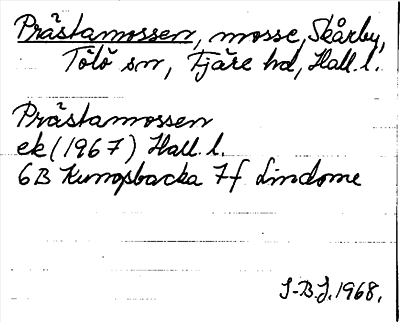 Prästamossen, mosse, Skårby,
Tölö sn, Fjäre hd, Hall. l.
Prästamossen
ek (1967) Hall. l.
6B Kungsbacka 7f Lindome
S-B.J. 1968.